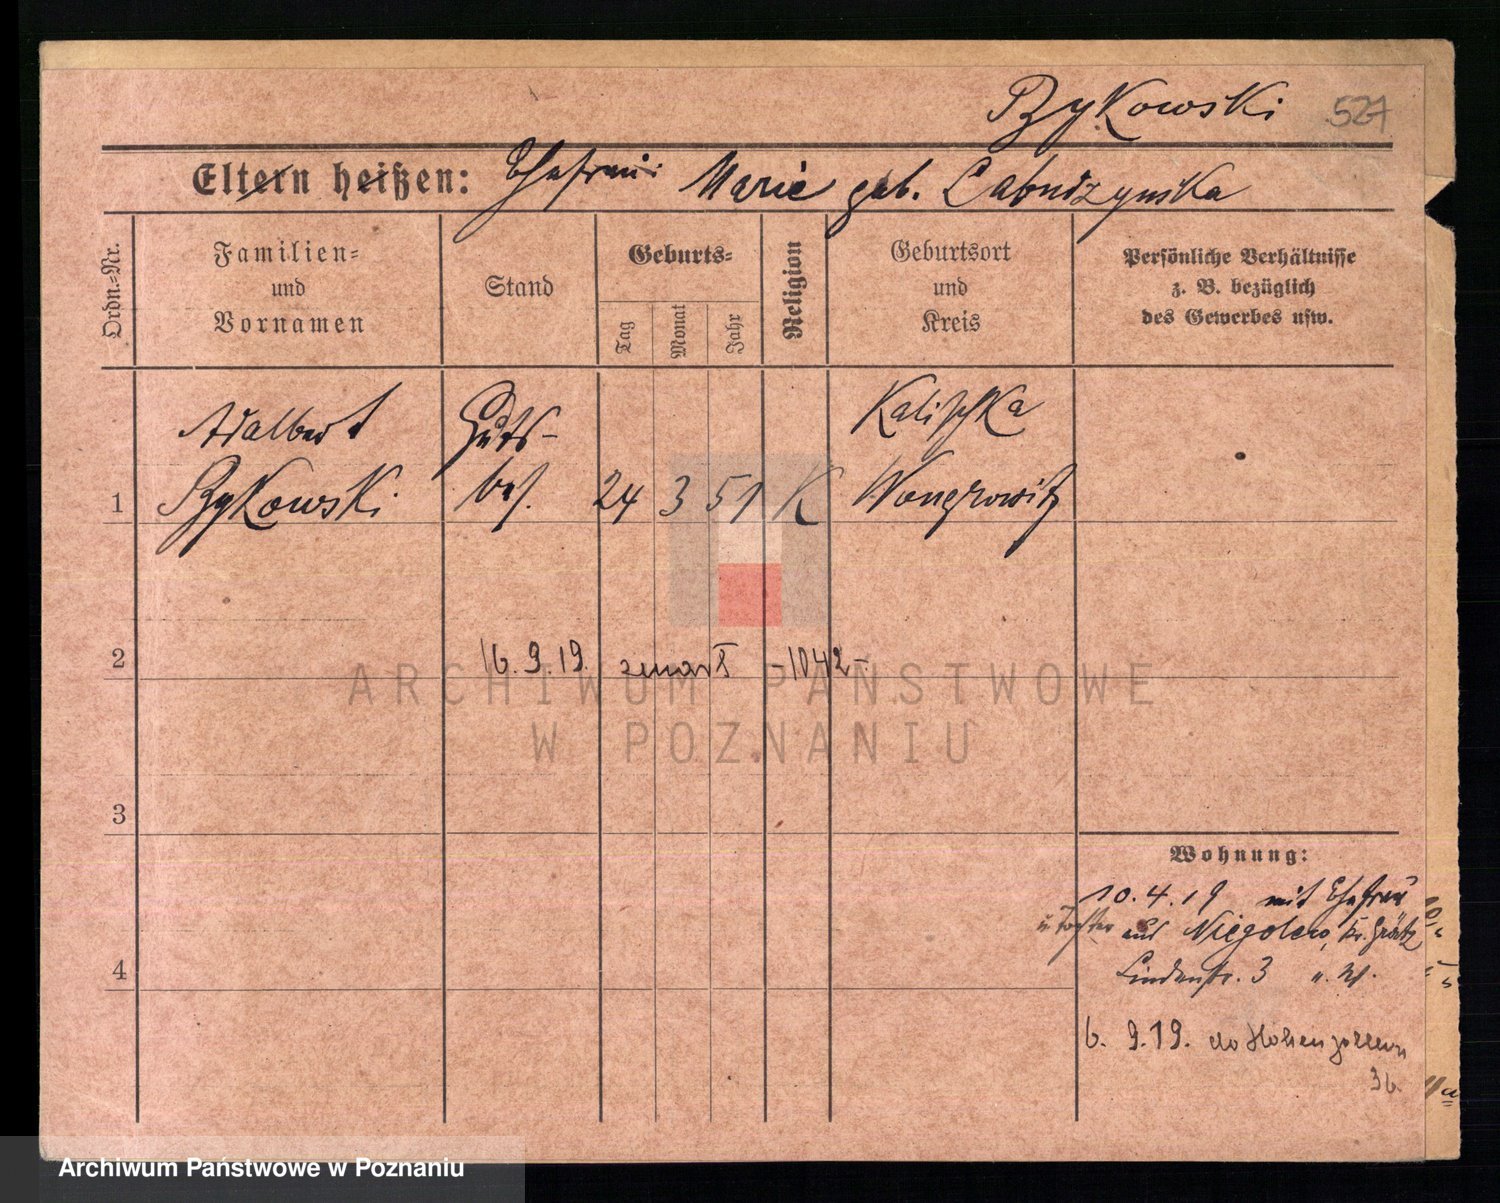 Bykowski 527
Eltern heißen: Ehefrau: Marie geb. Labudzynska
Ordn.-Nr.
Familien-
und
Vornamen
Stand
Geburts-
Tag
Monat
Jahr
Religion
Geburtsort
und
Kreis
Persönliche Verhältnisse
z. B. bezüglich
des Gewerbes usw.
Adalbert Guts- Kalischka
1 Bykowski bes. 24 3 51 K Wongrowitz
2 16.9.19. zmarł -1042-
ARCHIWUM PAŃSTWOWE
W POZNANIU
3
Wohnung:
10.4.19 mit Ehefrau
u Tochter aus Niegolewo, Kr. Grätz
4 Lindenstr. 3
6. 9.19. do Hohenzollern
36.
Archiwum Państwowe w Poznaniu